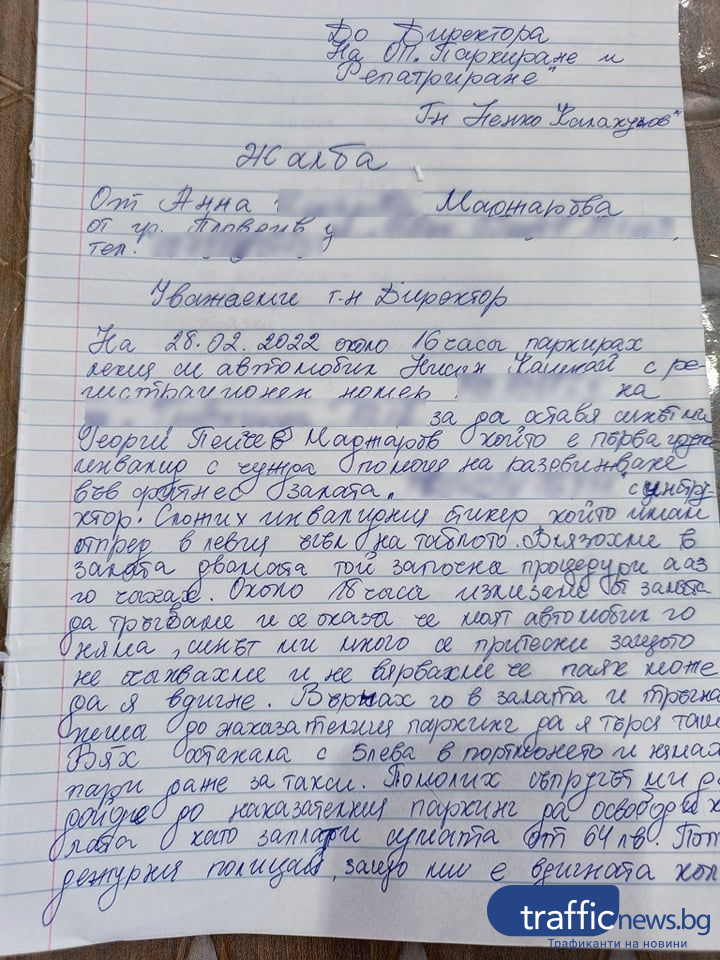 До Директора
На ОП „Паркиране и
Репатриране"
Г-н Ненко Калакунов"
Жалба
От Анна Маджарова
от гр. Пловдив
тел.
Уважаеми г-н Директор
На 28.02.2022 около 16 часы паркирах
лекия си автомобил Нисан Кашкай с ре
гистрационен номер на
за да оставя синът ми
Георги Пейчев Маджаров който е първа група
инвалид с чужда помощ на раздвижване
във фитнес залата. с инстру-
ктор. Сложих инвалидния стикер който имам
отпред в левия ъгъл на таблото. Влязохме в
залата двамата той започна процедури а аз
го чаках. Около 18 часа излизаме от залата
да тръгваме и се оказа че моят автомобил го
няма, синът ми много се притесни защото
не очаквахме и не вярвахме че паяк може
да я вдигне. Върнах го в залата и тръгна
пеша до наказателния паркинг да я търся
Бях останала с 5 лева в портмонето и нямах
пари даже за такси. Помолих съпругът ми да
дойде до наказателния паркинг да освободи к
лата като заплати сумата от 64 лв.
дежурния полицай, защо ми е вдигната кол
trafficnews.bg
Трафиканти на новини